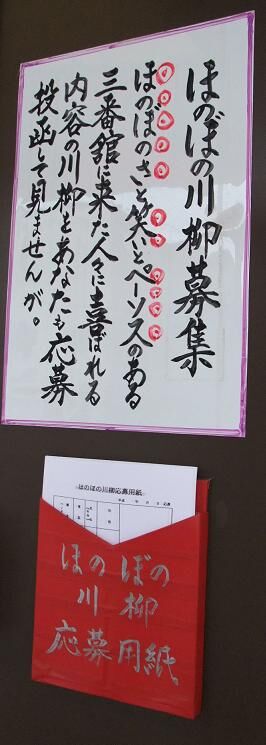 ほのぼの川柳募集
ほのぼのさと笑いとペーソスのある
三番舘に来た人々に喜ばれる
内容の川柳をあなたも応募
投函して見ませんか。
ほのぼの川柳応募用紙
平成 年 月 日 応募
ほのぼの
川柳
応募用紙